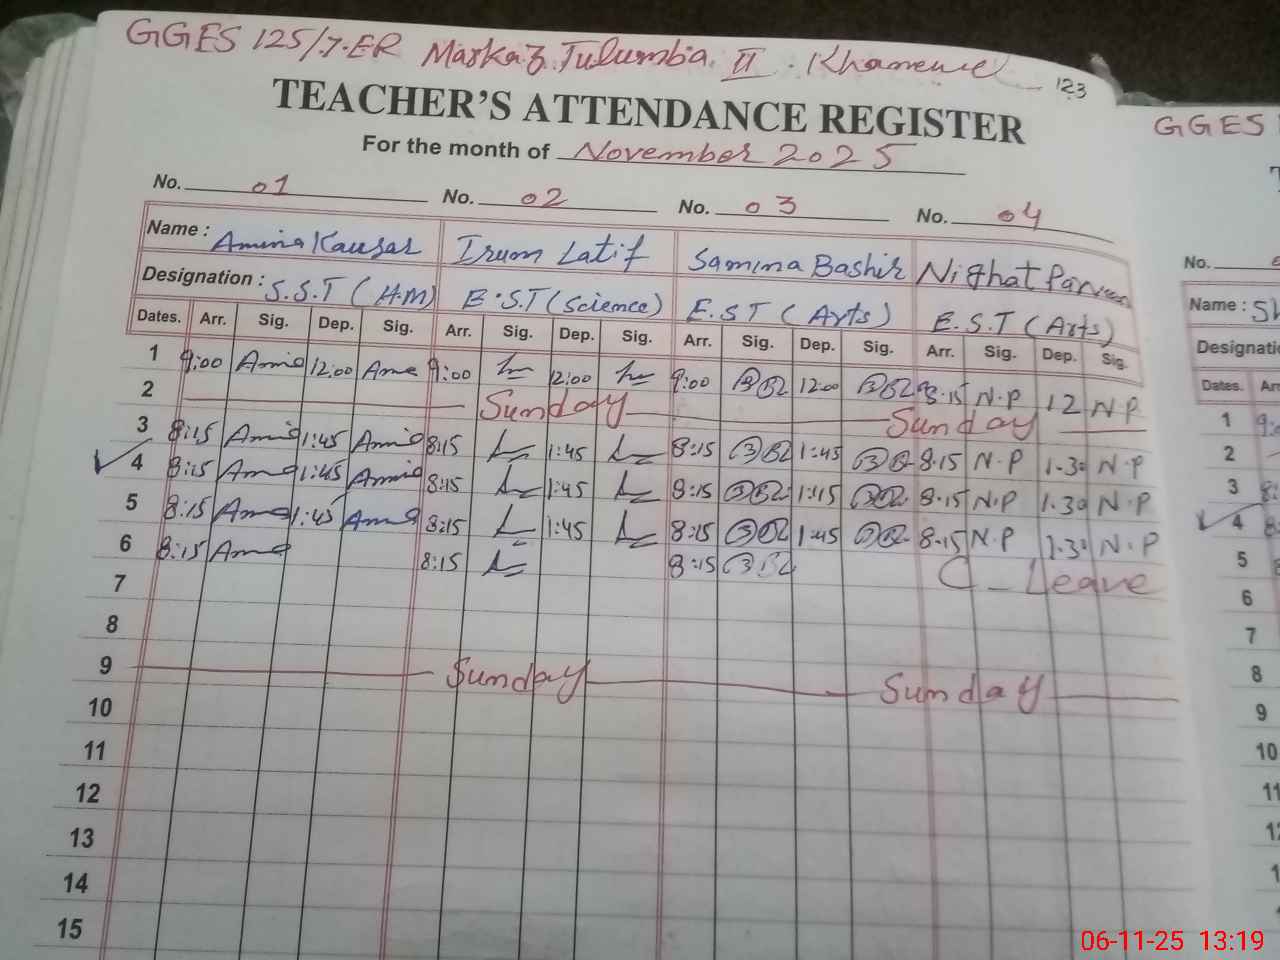 GGES 125/7-ER Markaz Tulumba II. Khanewal
123
TEACHER'S ATTENDANCE REGISTER
For the month of November 2025
No. 01 No. 02 No. 03 No. 04
Name : Amina Kausar Irum Latif Samina Bashir Nighat Parveen
Designation : S.S.T (H.M) E.S.T (Science) E.S.T (Arts) E.S.T (Arts)
Dates. Arr. Sig. Dep. Sig. Arr. Sig. Dep. Sig. Arr. Sig. Dep. Sig. Arr. Sig. Dep. Sig.
1 9:00 Amna 12:00 Amna 9:00 12:00 9:00 12:00 8.15 N.P 12 N.P
2 Sunday Sunday
3 8:15 Amna 1:45 Amna 8:15 1:45 8:15 1:45 8.15 N.P 1.30 N.P
4 8:15 Amna 1:45 Amna 8:15 1:45 8:15 1:45 8.15 N.P 1.30 N.P
5 8:15 Amna 1:45 Amna 8:15 1:45 8:15 1:45 8.15 N.P 1.30 N.P
6 8:15 Amna 8:15 8:15 C-Leave
7
8
9 Sunday Sunday
10
11
12
13
14
15
GGES
No.
Name :
Designati
Dates.
1
2
3
4
5
6
7
8
9
10
11
12
13
06-11-25 13:19